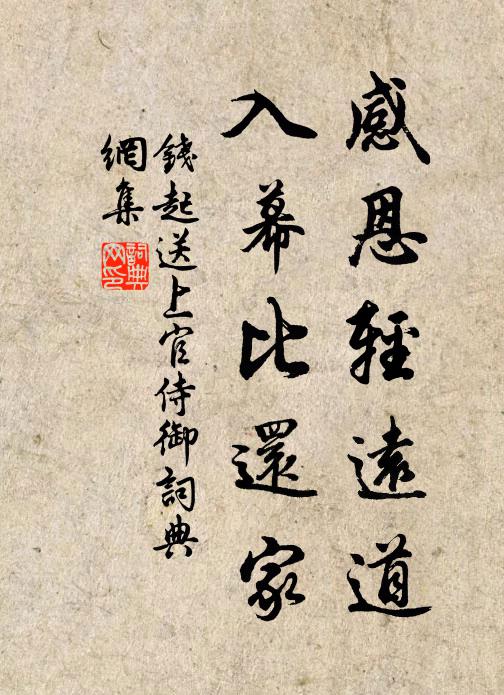 感恩輕遠道
入幕比還家
錢起送上官侍御詞典
網集
詞典
网印